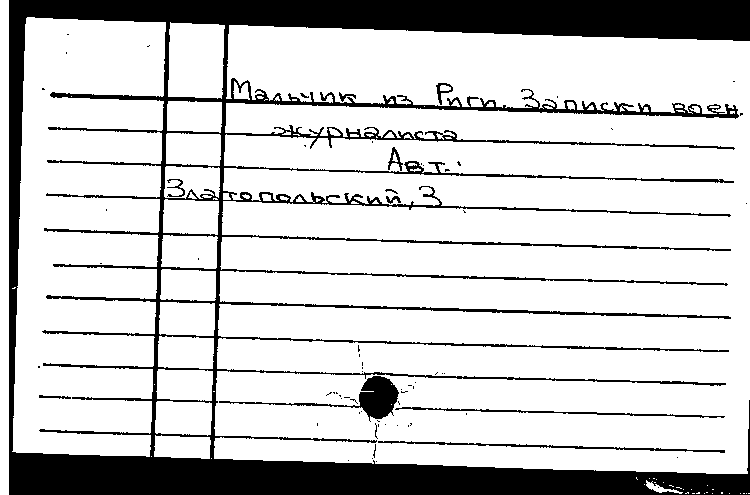 Мальчик из Риги. Записки воен.
журналиста
Авт.:
Златопольский, З